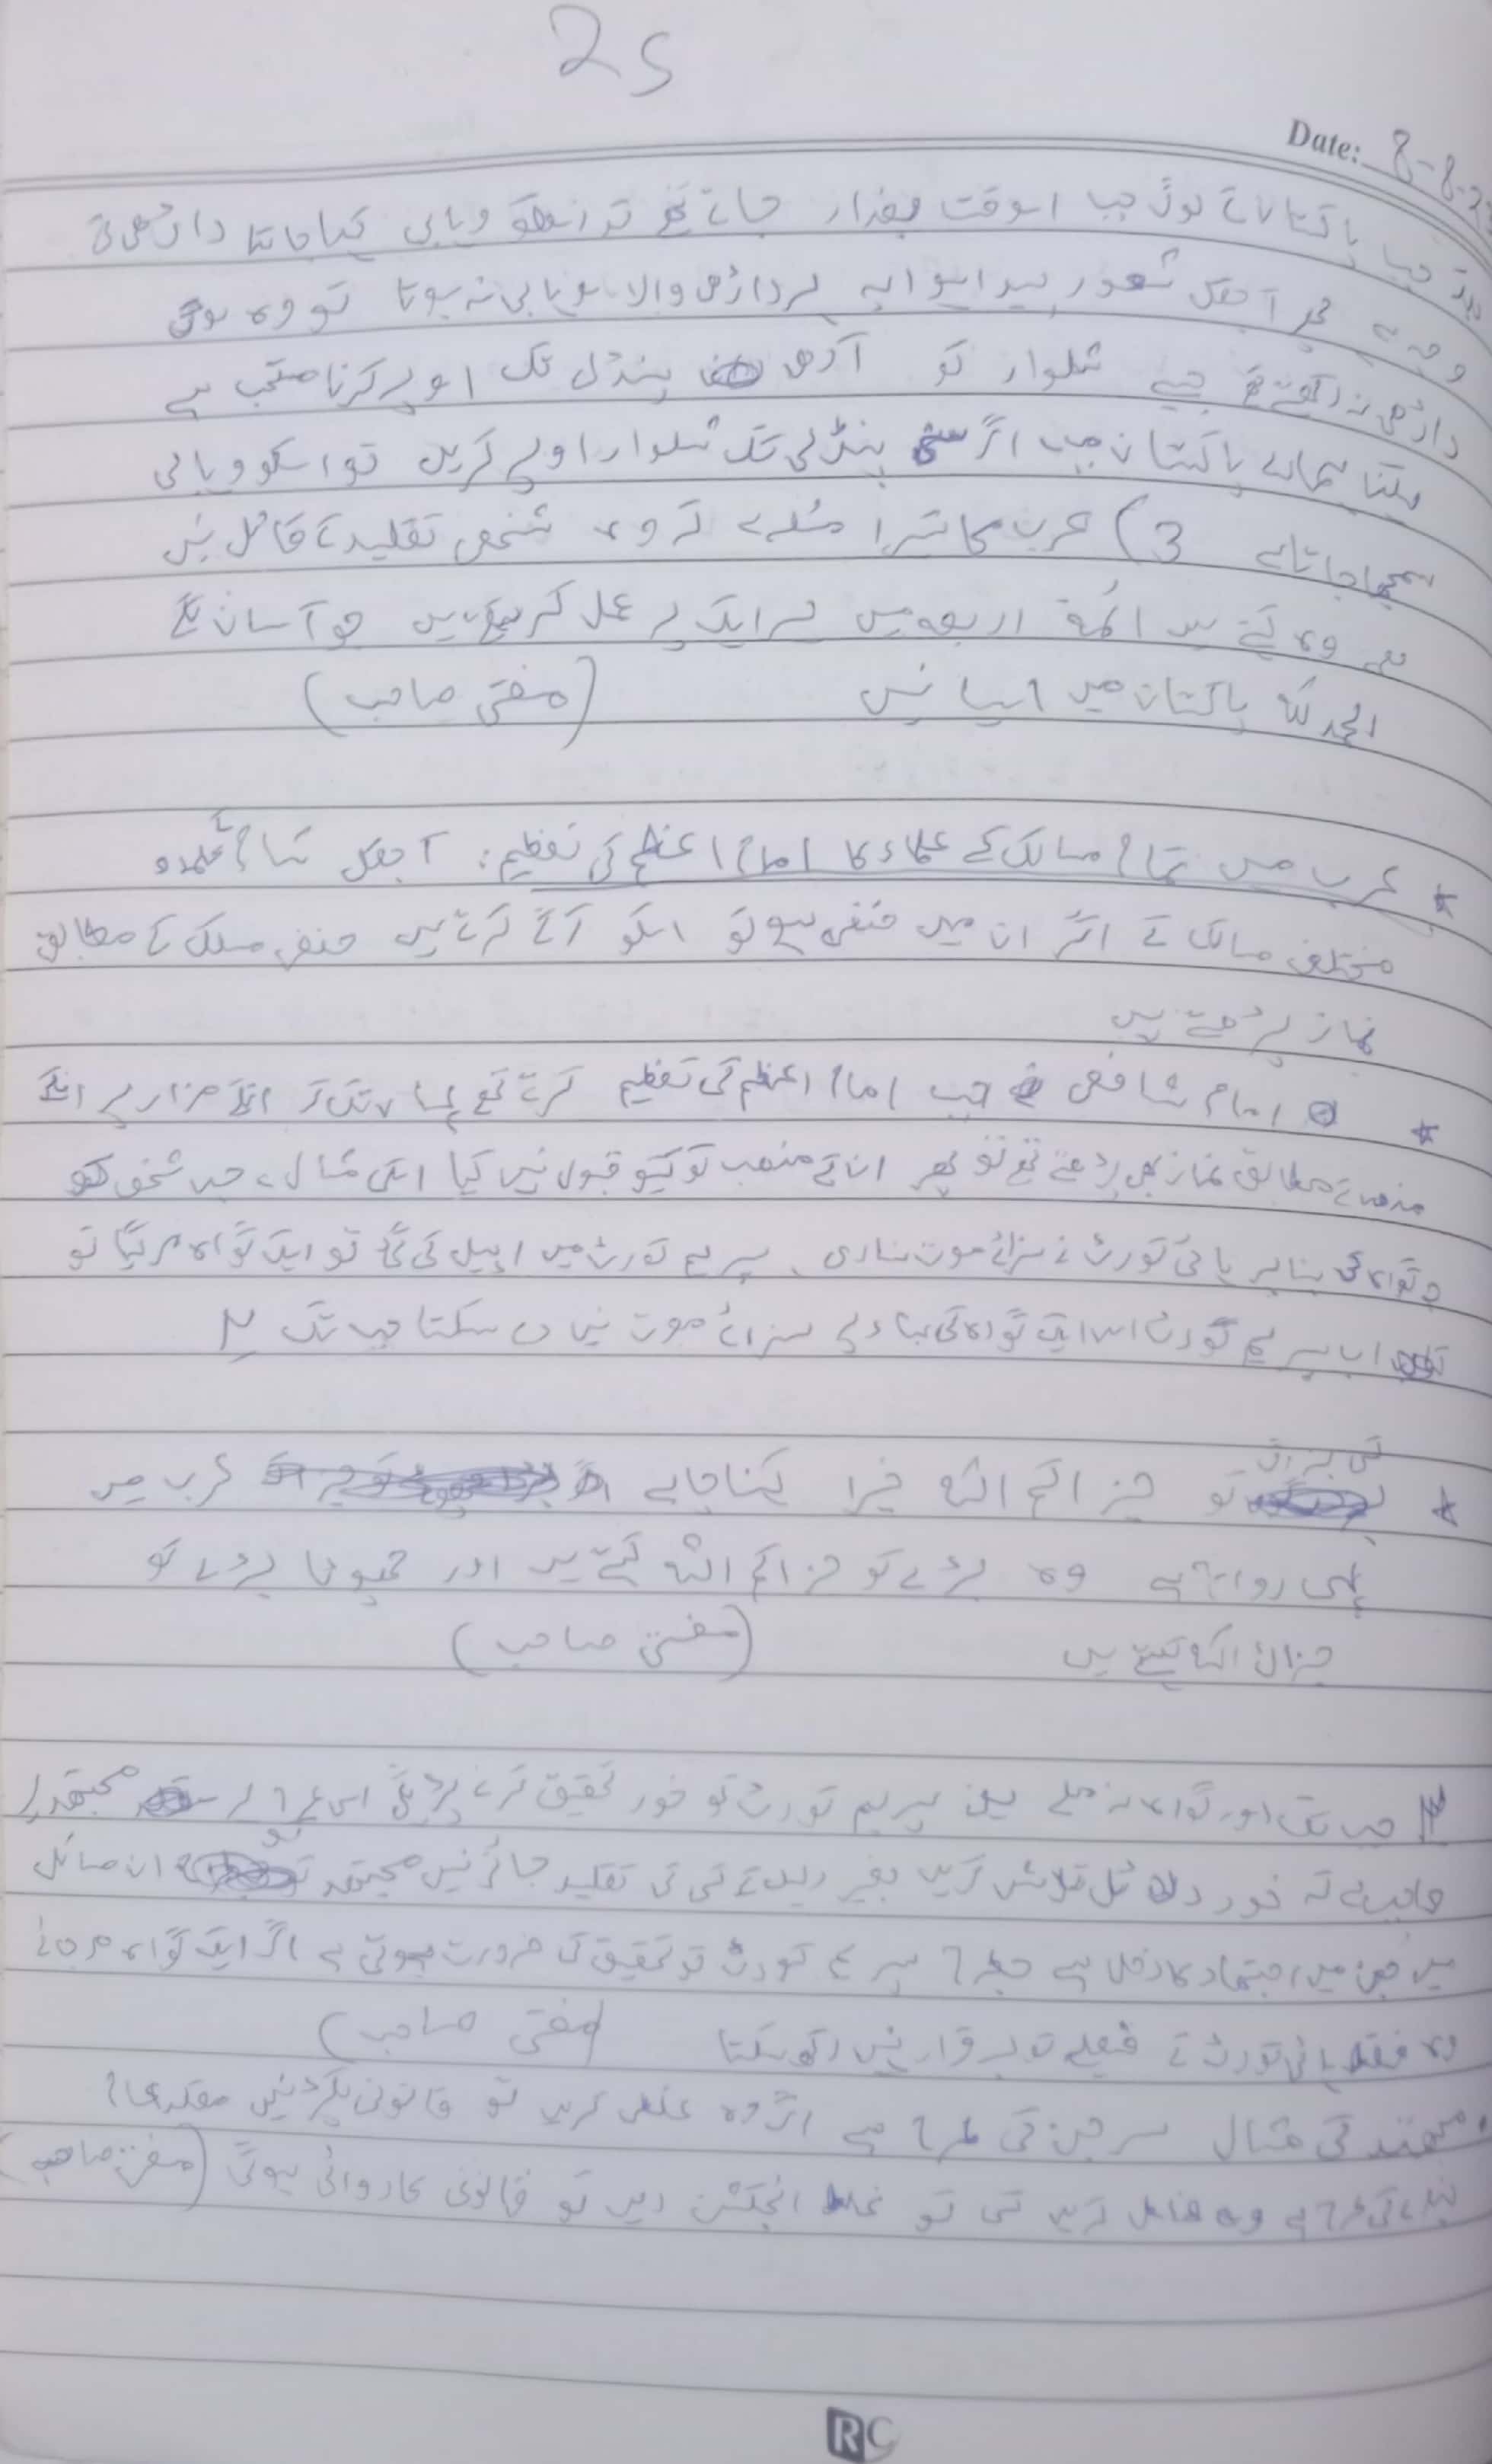 25
Date: 8-8-2
پاکستان کے لوگ جب اسوقت بغداد جاتے تھے تو انکو وہابی کہا جاتا داڑھی کی
وجہ سے پھر آجکل شعور پیدا ہوا ہے ہر داڑھی والا وہابی نہ ہوتا تو وہ لوگ
داڑھی نہ رکھتے تھے جیسے شلوار کو آدھی پنڈلی تک اوپر کرنا مستحب ہے
لیکن ہمارے پاکستان میں اگر سنی پنڈلی تک شلوار اوپر کریں تو اسکو وہابی
سمجھا جاتا ہے 3) عرب کا تیسرا مسئلہ ہے کہ وہ شخصی تقلید کے قائل نہیں
ہے وہ کہتے ہیں ائمہ اربعہ میں ہر ایک پر عمل کر سکتے ہیں جو آسان لگے
الحمد للہ پاکستان میں ایسا نہیں (مفتی صاحب)
* عرب میں تمام مسالک کے علماء کا امام اعظم کی تعظیم: آجکل تمام علماء
مختلف مسالک کے اگر ان میں حنفی ہے تو اسکو آگے کرتے ہیں حنفی مسلک کے مطابق
نماز پڑھتے ہیں
* امام شافعی جب امام اعظم کی تعظیم کرتے تھے یہاں تک کہ انکے مزار پر انکے
مذہب کے مطابق نماز بھی پڑھتے تھے تو پھر ان کے مذہب کو کیو قبول نہیں کیا اسکی مثال، جس شخص کو
2 گواہ کی بنا پر ہائی کورٹ نے سزائے موت سنا دی، سپریم کورٹ میں اپیل کی گئی تو ایک گواہ مر گیا تو
اب سپریم کورٹ اس ایک گواہ کی بنیاد پر سزائے موت نہیں دے سکتا جب تک
کسی بڑے
* کو جزاکم اللہ خیرا کہنا چاہیے عرب میں
یہی رواج ہے وہ بڑے کو جزاکم اللہ کہتے ہیں اور چھوٹا بڑے کو
جزاک اللہ کہتے ہیں (مفتی صاحب)
جب تک اور گواہ نہ ملے لیکن سپریم کورٹ کو خود تحقیق کرنے پڑیگی اسی طرح ہر مجتہد پر
چاہیے کہ خود دلائل تلاش کریں بغیر دلیل کے کسی کی تقلید جائز نہیں مجتہد کو ان مسائل
میں جن میں اجتہاد کا دخل ہے جسطرح سپریم کورٹ کو تحقیق کی ضرورت ہوتی ہے اگر ایک گواہ مر جائے
وہ فقط ہائی کورٹ کے فیصلے کو برقرار نہیں رکھ سکتا (مفتی صاحب)
مجتہد کی مثال سرجن کی طرح ہے اگر وہ غلطی کریں تو قانونی پکڑ نہیں مقلد عام
بندے کی طرح ہے وہ غلطی کریں کسی کو غلط انجکشن دیں تو قانونی کاروائی ہوگی (مفتی صاحب)
RC